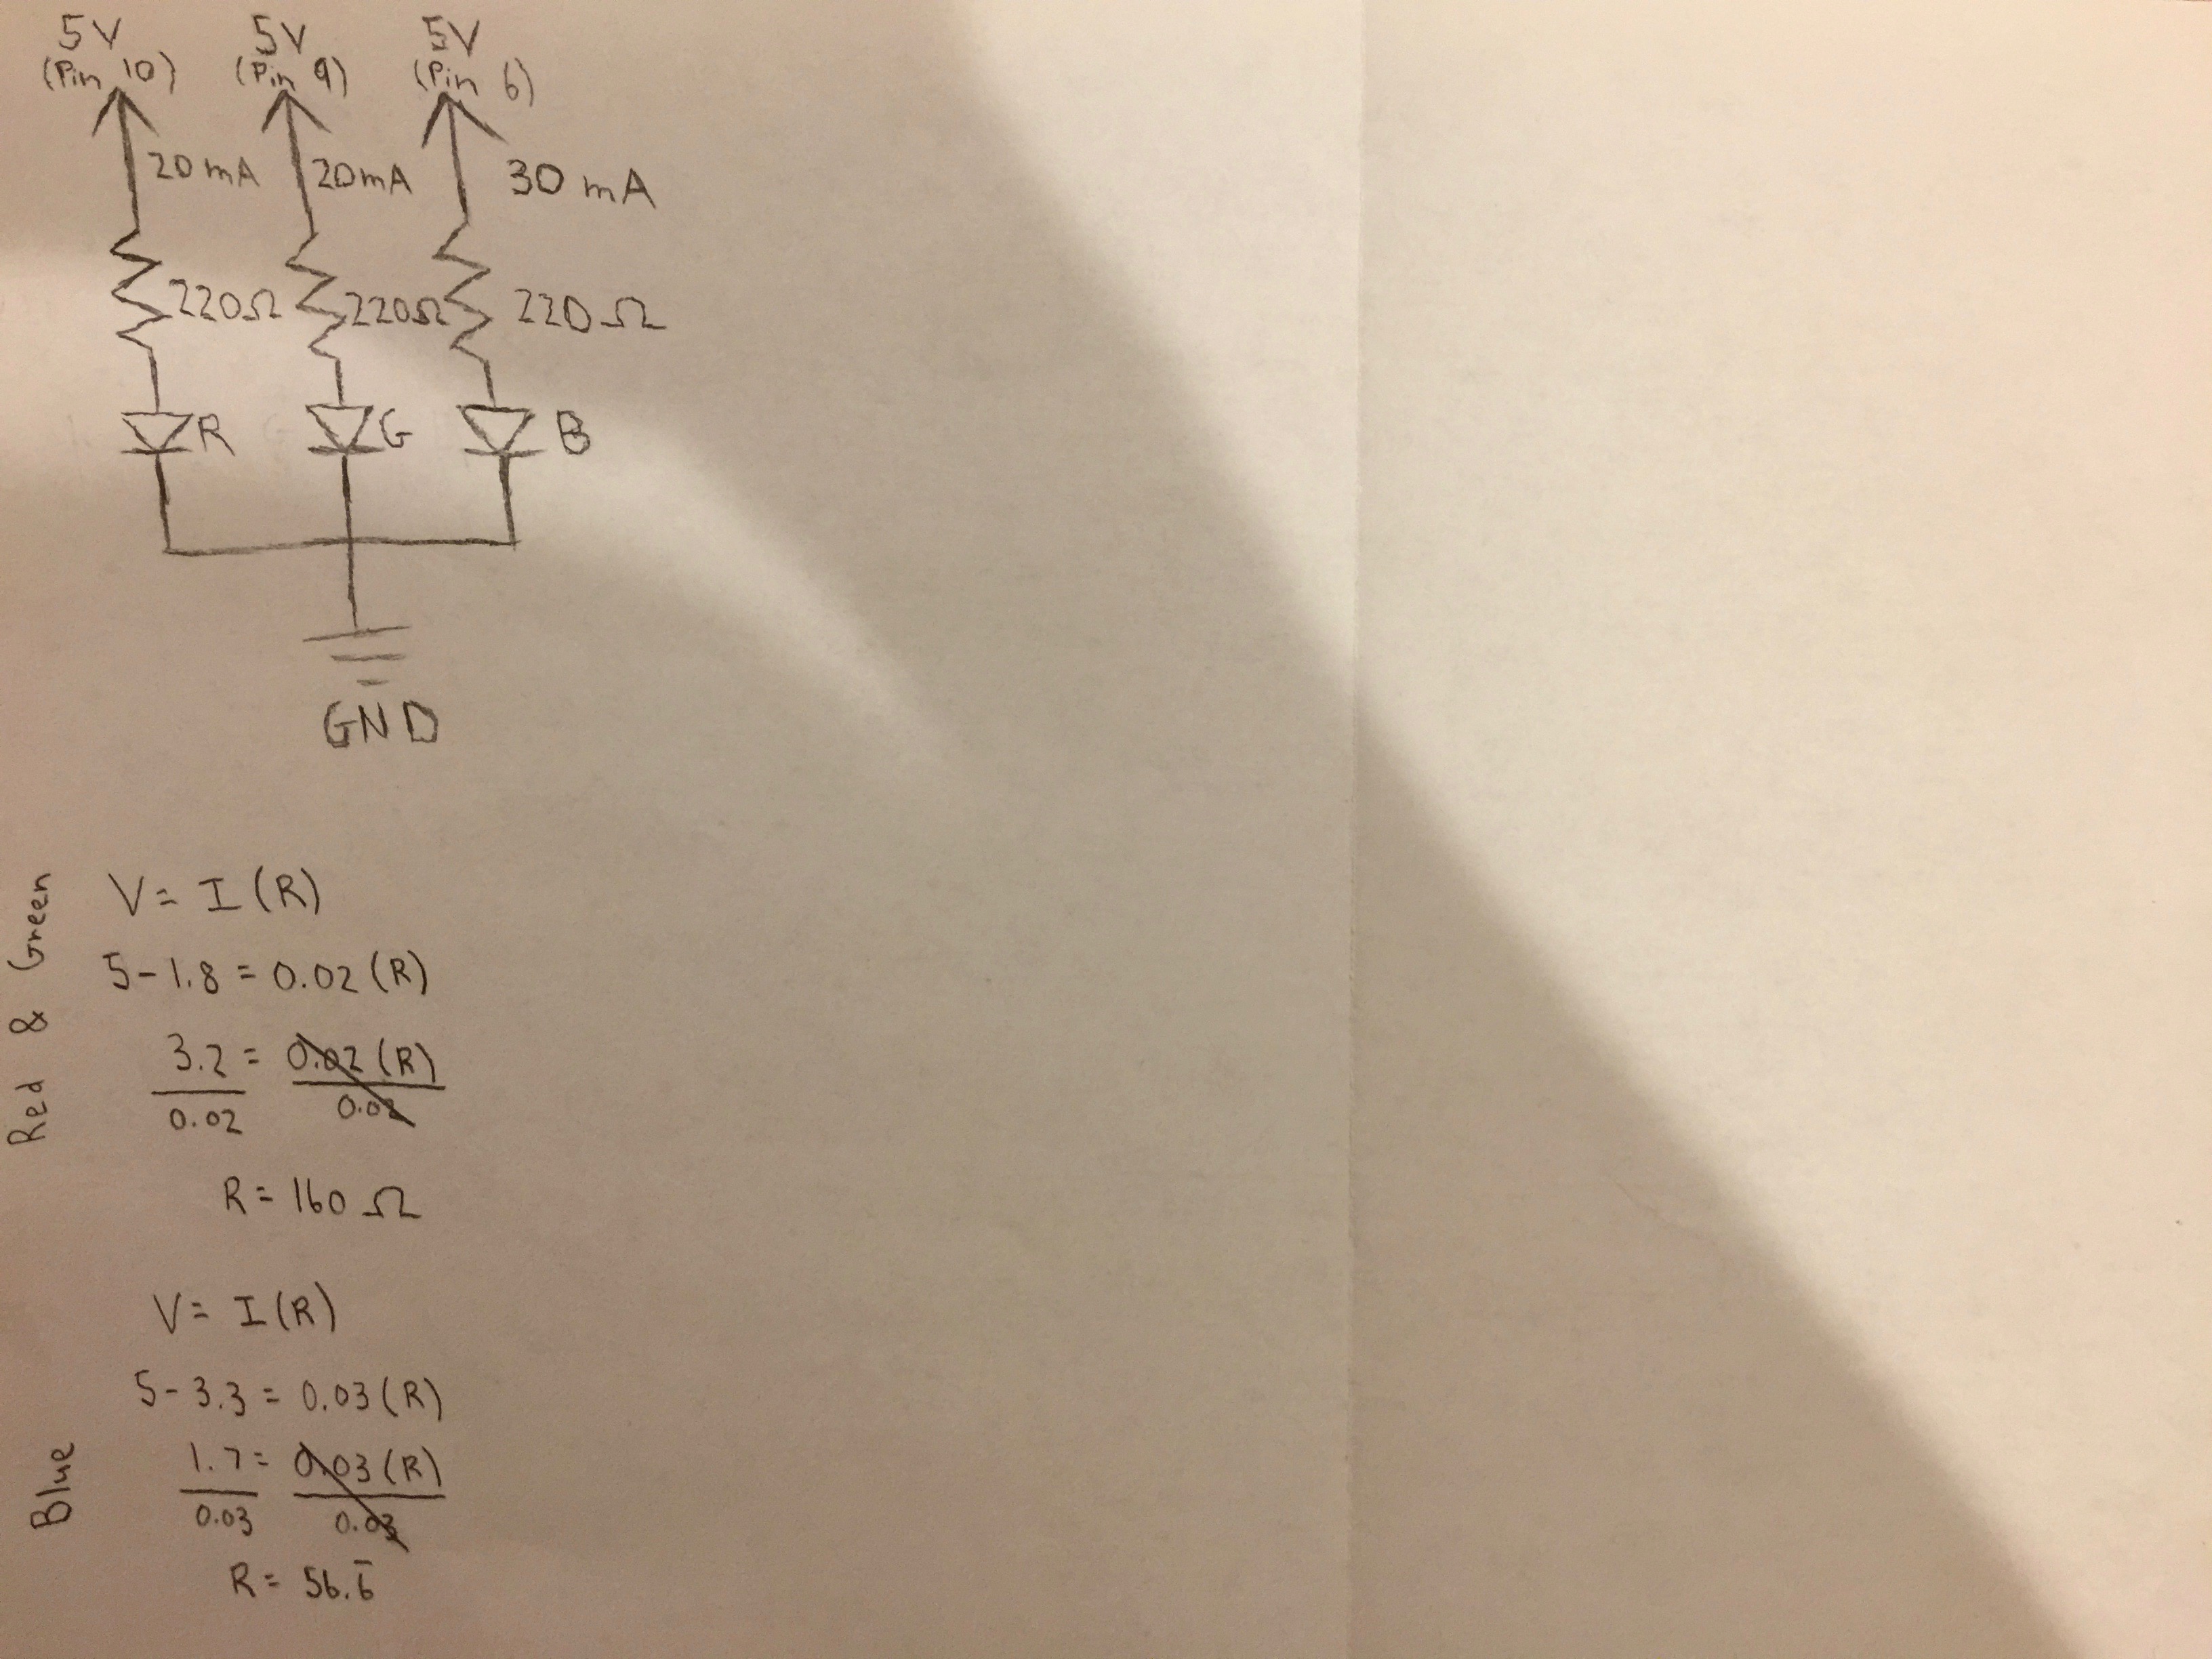 5V 5V 5V
(Pin 10) (Pin 9) (Pin 6)
20 mA 20mA 30 mA
220Ω 220Ω 220Ω
R G B
GND
Red & Green
V = I (R)
5-1.8 = 0.02 (R)
3.2 = 0.02 (R)
0.02 0.02
R = 160 Ω
Blue
V = I (R)
5-3.3 = 0.03 (R)
1.7 = 0.03 (R)
0.03 0.03
R = 56.6̅